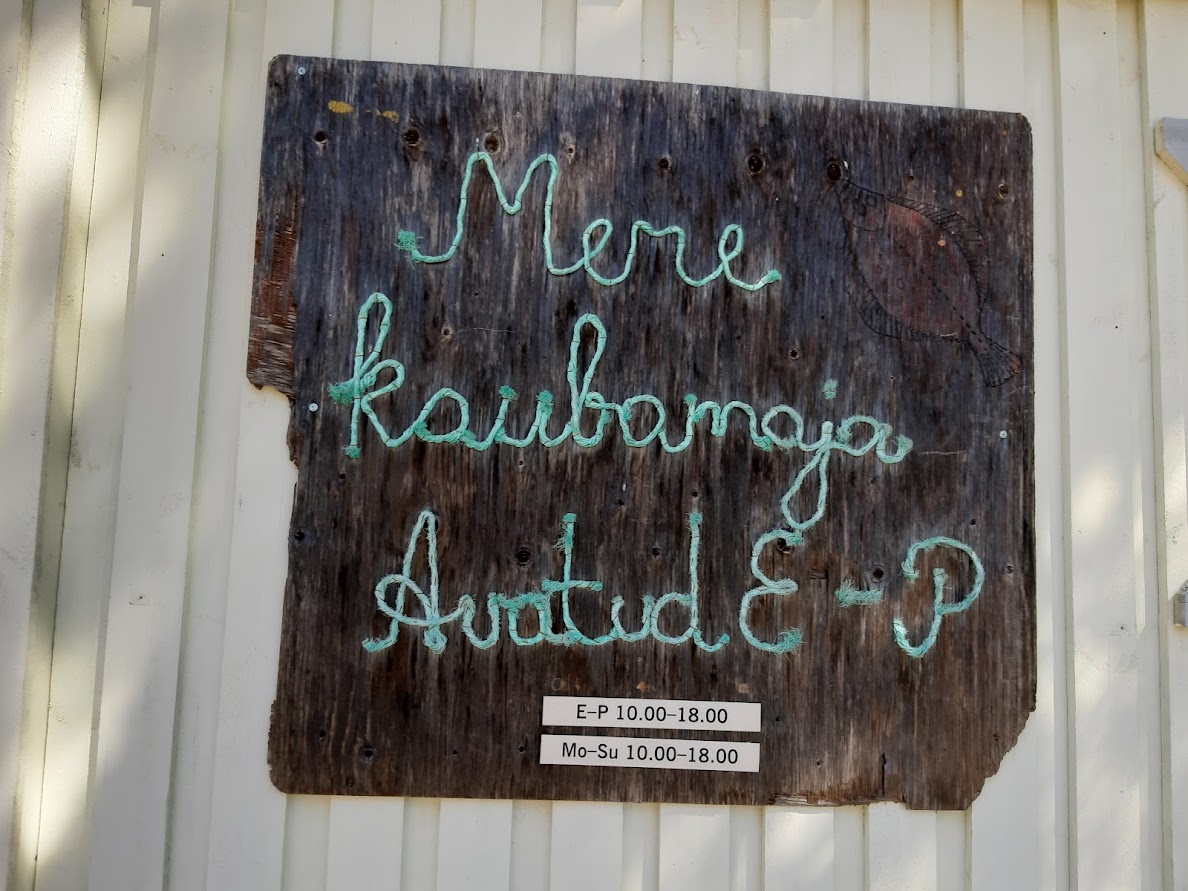 Mere
kaubamaja
Avatud E-P
E–P 10.00–18.00
Mo–Su 10.00–18.00